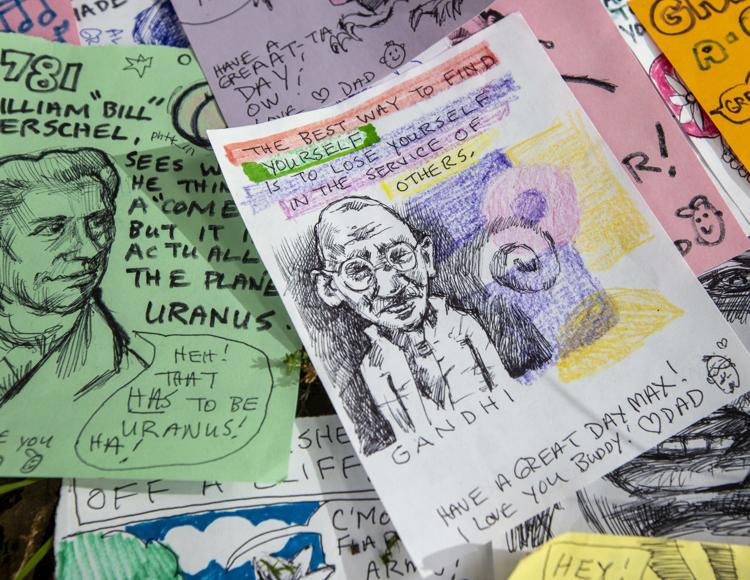 MADE
HAVE A
GREAAT-TA
DAY!
OW!
LOVE ♡ DAD
1781
WILLIAM "BILL"
HERSCHEL,
SEES
HE THIN
A "COME
BUT IT
ACTUALL
THE PLANE
URANUS.
HEH!
THAT
HAS TO BE
URANUS!
HA!
YOU
THE BEST WAY TO FIND
YOURSELF
IS TO LOSE YOURSELF
IN THE SERVICE OF
OTHERS.
GANDHI
HAVE A GREAT DAY MAX!
I LOVE YOU BUDDY! ♡ DAD
R!
D
SHE
OFF A CLIFF
C'MO
FLAP
ARM
HEY!